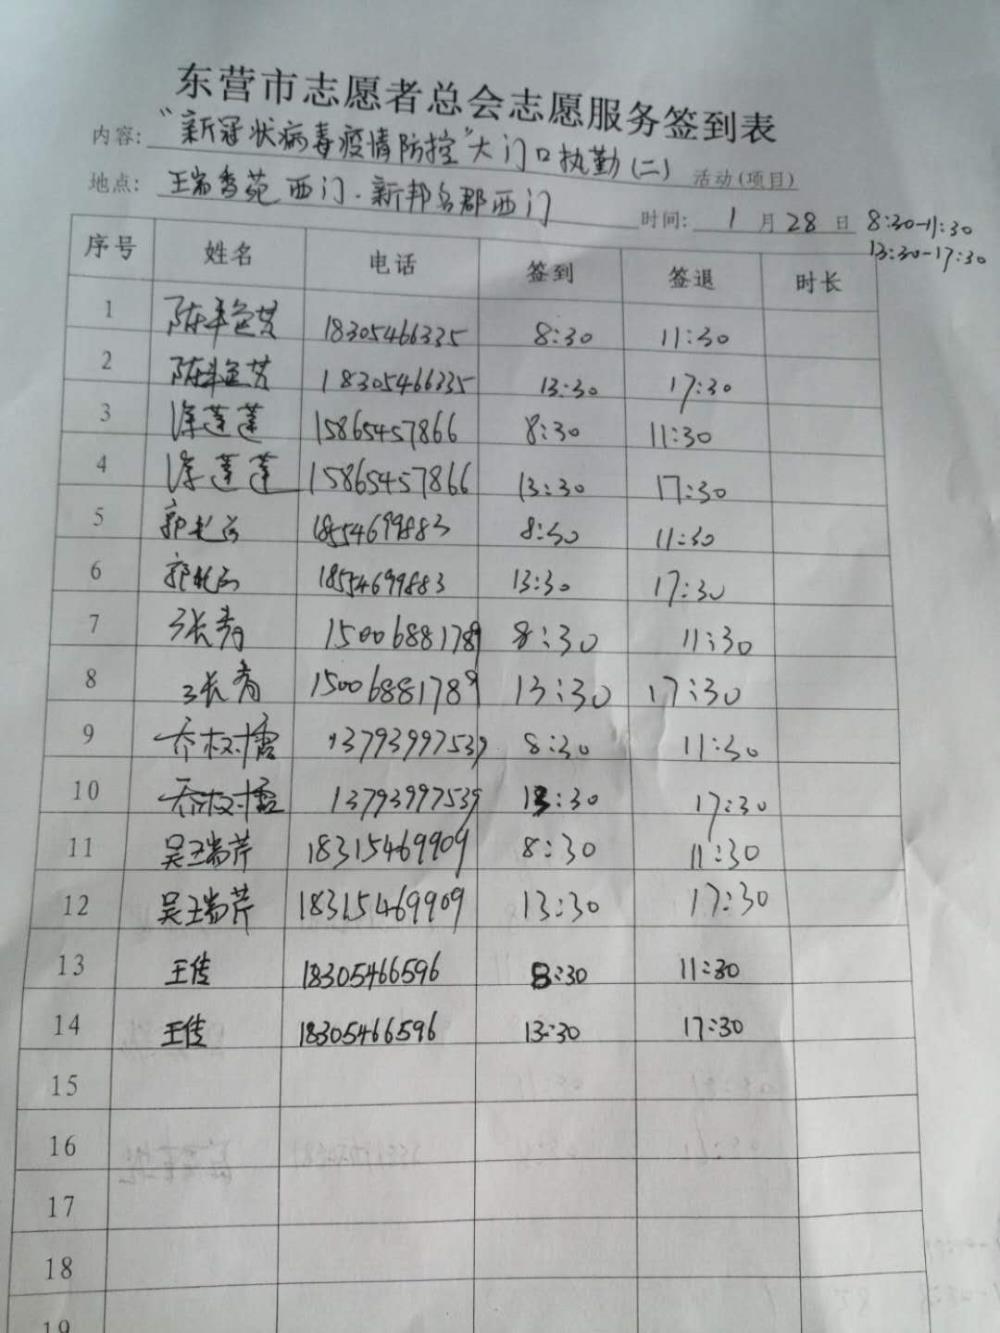 东营市志愿者总会志愿服务签到表
内容: “新冠状病毒疫情防控”大门口执勤(二) 活动(项目)
地点: 瑞香苑西门.新邦名郡西门 时间: 1月28日 8:30-11:30
13:30-17:30
序号 姓名 电话 签到 签退 时长
1 陈 18305466335 8:30 11:30
2 陈 18305466335 13:30 17:30
3 涂莲莲 15865457866 8:30 11:30
4 涂莲莲 15865457866 13:30 17:30
5 郭 18554699883 8:30 11:30
6 郭 18554699883 13:30 17:30
7 张青 15006881789 8:30 11:30
8 张青 15006881789 13:30 17:30
9 乔树 13793997539 8:30 11:30
10 乔树 13793997539 13:30 17:30
11 吴瑞芹 18315469909 8:30 11:30
12 吴瑞芹 18315469909 13:30 17:30
13 王传 18305466596 8:30 11:30
14 王传 18305466596 13:30 17:30
15
16
17
18
19